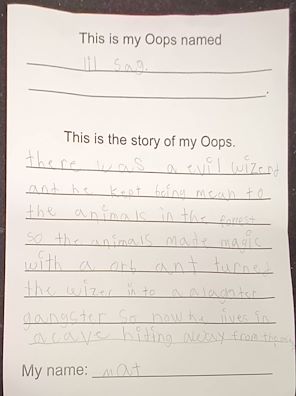 This is my Oops named
lil sag.
This is the story of my Oops.
there was a evil wizerd
and he kept being mean to
the animals in the forrest
so the animals made magic
with a orb ant turned
the wizer in to a
gangster so now he lives in
a cave hiting away from
My name: mat